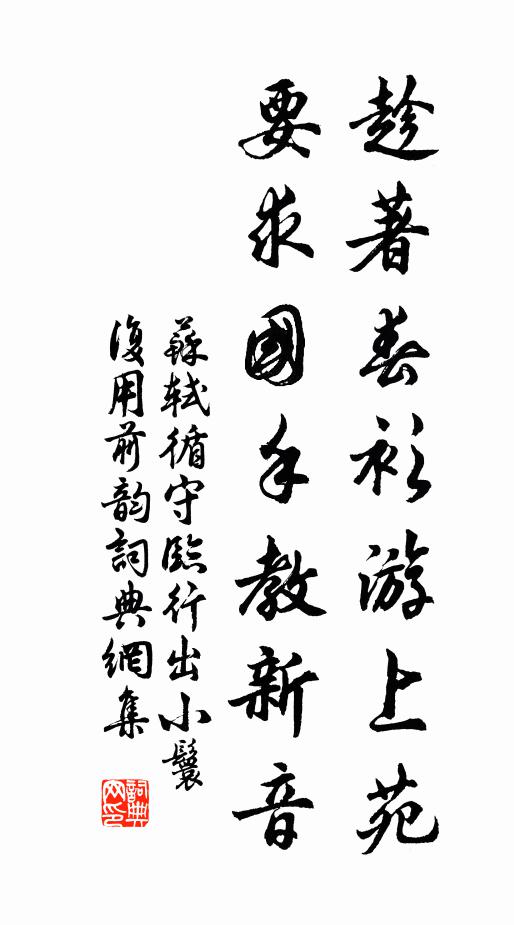 趁著春衫游上苑
要求國手教新音
蘇軾循守臨行出小鬟
復用前韵詞典網集
詞典网印